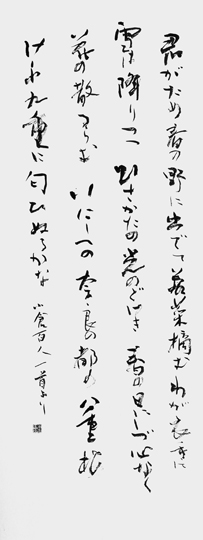 君がため春の野に出でて若菜摘むわが衣手に
雪は降りつつ ひさかたの光のどけき 春の日にしづ心なく
花の散るらむ いにしへの奈良の都の八重桜
けふ九重に匂ひぬるかな 小倉百人一首より